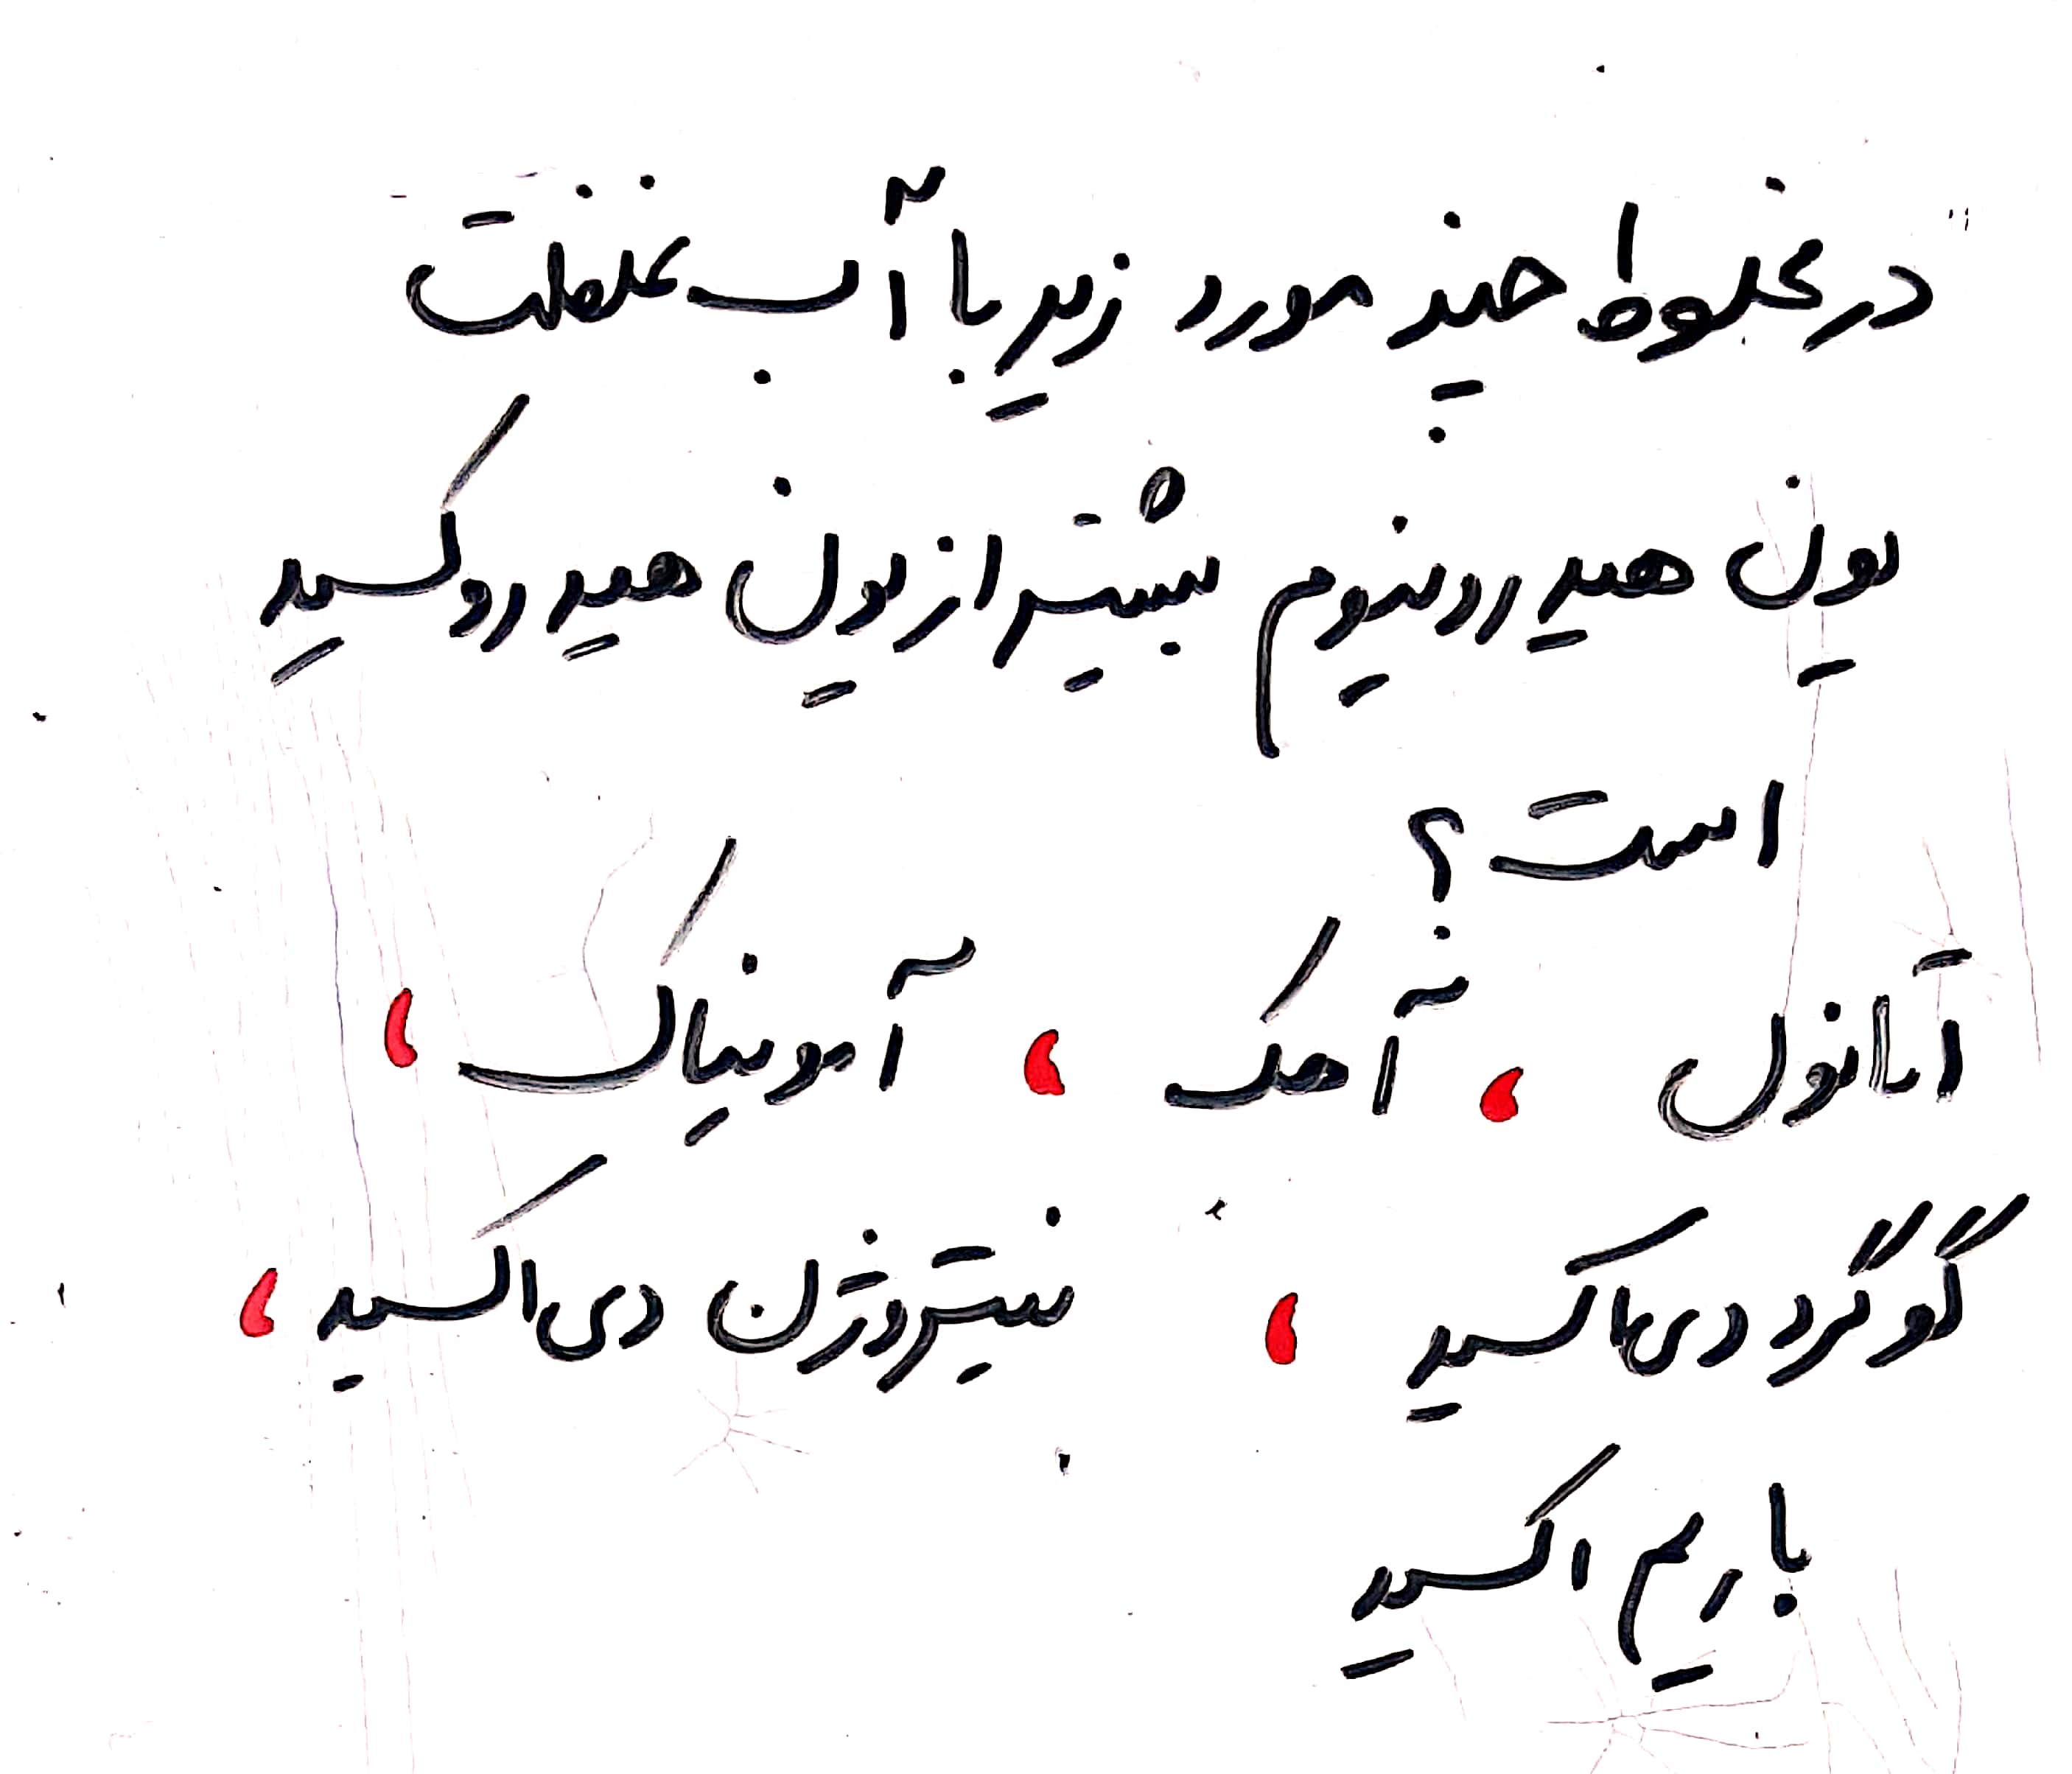 در مخلوط چند مورد زیر با آب غلظت
یون هیدرونیوم بیشتر از یون هیدروکسید
است؟
اتانول ، آهک ، آمونیاک ،
گوگرد دی اکسید ، نیتروژن دی اکسید ،
باریم اکسید